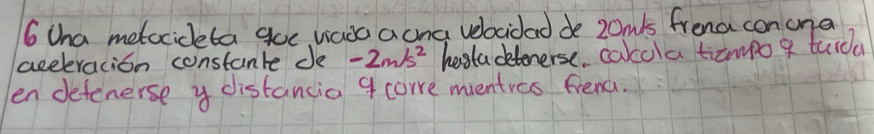 6 Una metocicleta que viaja a ona velocidad de 20m/s frena con ona
aceleración constante de -2m/s² hasta detenerse. calcola tiempo q tarda
en detenerse y distancia q corre mientras frena.